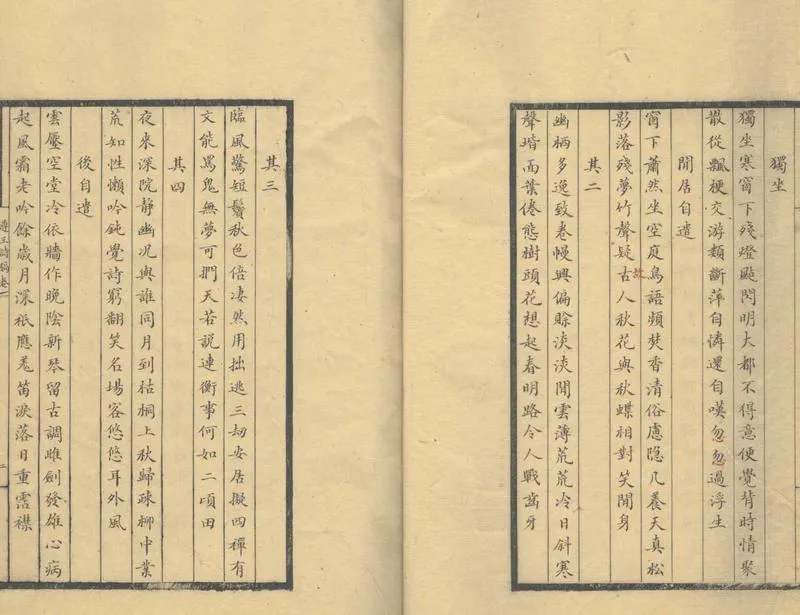 獨坐
獨坐寒窗下殘燈颭閃明大都不得意便覺背時情聚
散從飄梗交游類斷萍自憐還自嘆忽忽過浮生
閒居自遣
窗下蕭然坐空庭鳥語頻焚香清俗慮隱几養天真松
影落殘夢竹聲疑古人秋花與秋蝶相對笑閒身
故
其二
幽栖多逸致卷幔興偏賒淡淡閒雲薄荒荒冷日斜寒
聲堦面葉倦態樹頭花想起春明路令人戰齒牙
其三
臨風驚短鬢秋色倍凄然用拙逃三劫安居擬四禪有
文能罵鬼無夢可捫天若說連衡事何如二頃田
其四
夜來深院靜幽況與誰同月到枯桐上秋歸疎柳中業
荒知性懶吟鈍覺詩窮翻笑名場客悠悠耳外風
後自遣
雲壓空堂冷依牆作晚陰新琴留古調雌劍發雄心病
起風霜老吟餘歲月深祇應羗笛淚落日重霑襟
詩稿卷二